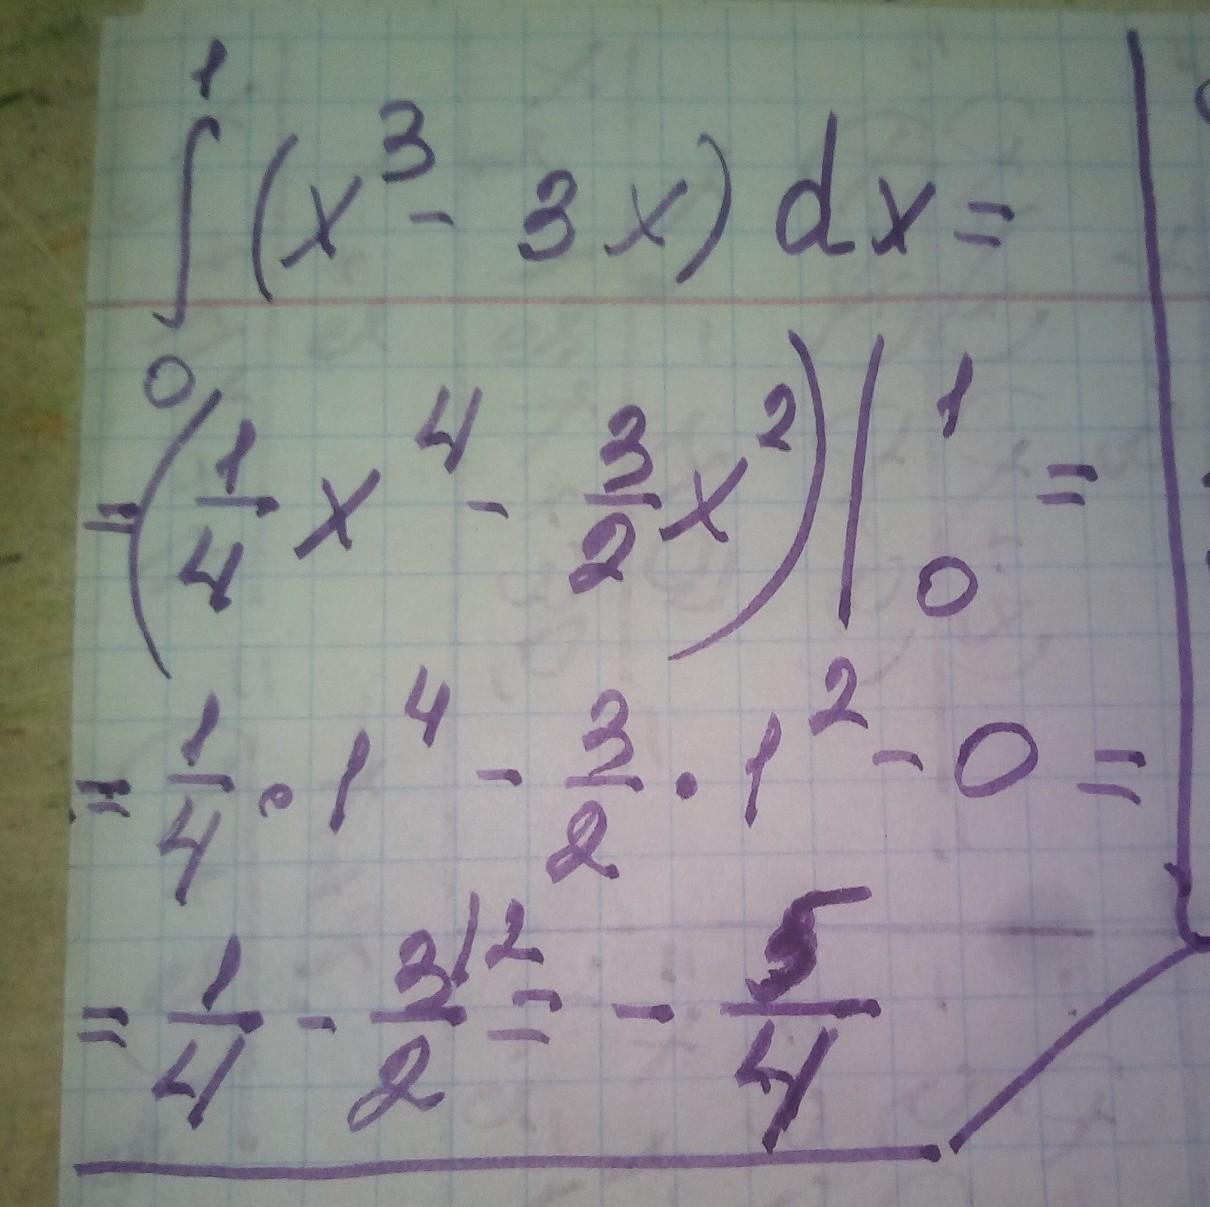 ∫₀¹ (x³ - 3x) dx =
= (1/4 x⁴ - 3/2 x²) |₀¹ =
= 1/4 · 1⁴ - 3/2 · 1² - 0 =
= 1/4 - 3/2 /2 = - 5/4